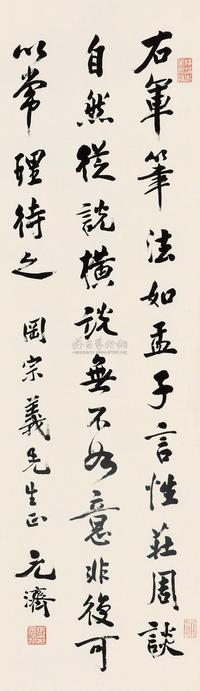 右軍筆法如孟子言性莊周談
自然從說橫說無不如意非復可
以常理待之 岡宗義先生正 元濟